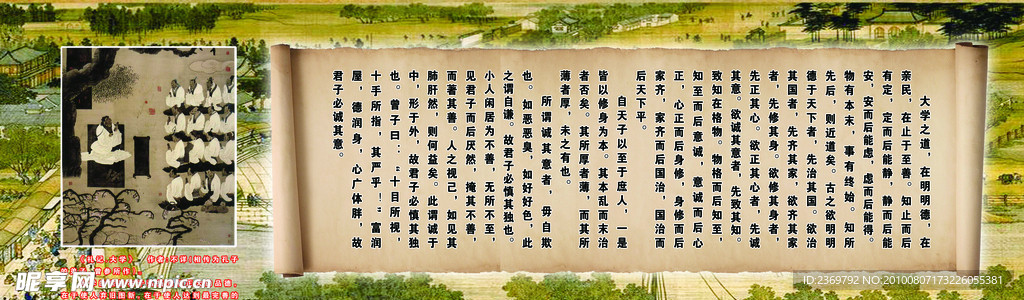 大学之道，在明明德，在
亲民，在止于至善。知止而后
有定，定而后能静，静而后能
安，安而后能虑，虑而后能得。
物有本末，事有终始。知所
先后，则近道矣。古之欲明明
德于天下者，先治其国。欲治
其国者，先齐其家，欲齐其家
者，先修其身。欲修其身者，
先正其心。欲正其心者，先诚
其意。欲诚其意者，先致其知。
致知在格物。物格而后知至，
知至而后意诚，意诚而后心
正，心正而后身修，身修而后
家齐，家齐而后国治，国治而
后天下平。
自天子以至于庶人，一是
皆以修身为本。其本乱而末治
者否矣。其所厚者薄，而其所
薄者厚，未之有也。
所谓诚其意者，毋自欺
也。如恶恶臭，如好好色，此
之谓自谦。故君子必慎其独也。
小人闲居为不善，无所不至，
见君子而后厌然，掩其不善，
而著其善。人之视己，如见其
肺肝然，则何益矣。此谓诚于
中，形于外，故君子必慎其独
也。曾子曰：“十目所视，
十手所指，其严乎！”富润
屋，德润身，心广体胖，故
君子必诚其意。
《礼记．大学》，作者:不详(相传为孔子
昵享网 www.nipic.com
NO:20100807173226055381